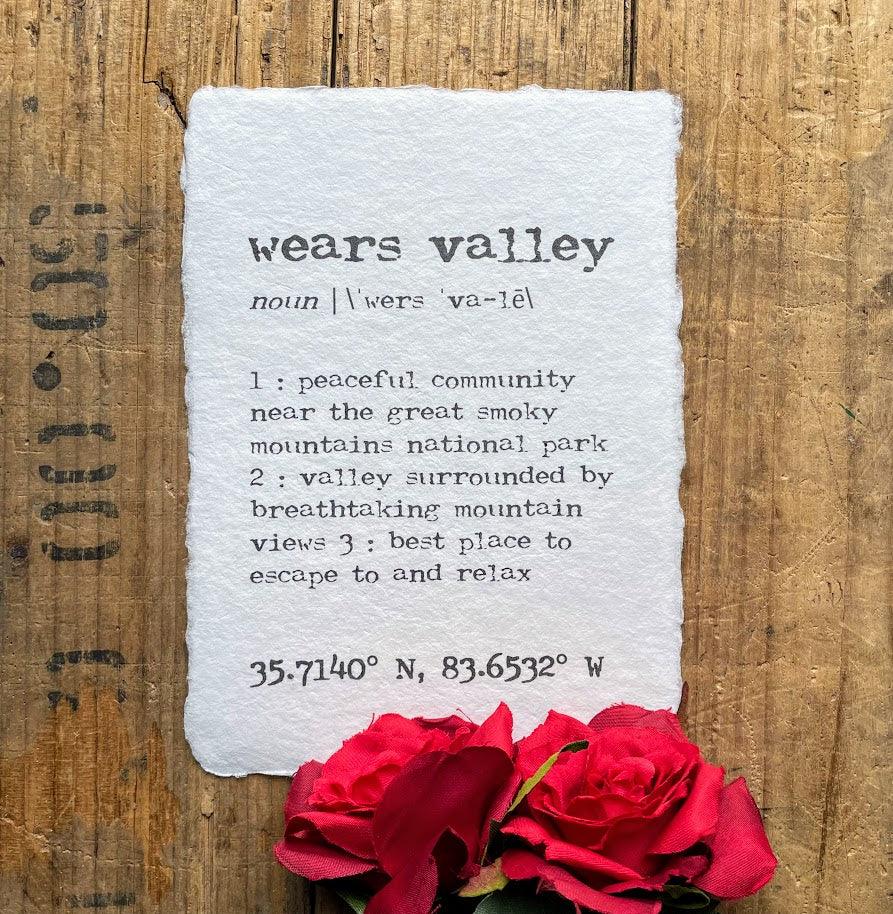 wears valley
noun | \ˈwers ˈva-lē\
1 : peaceful community
near the great smoky
mountains national park
2 : valley surrounded by
breathtaking mountain
views 3 : best place to
escape to and relax
35.7140° N, 83.6532° W